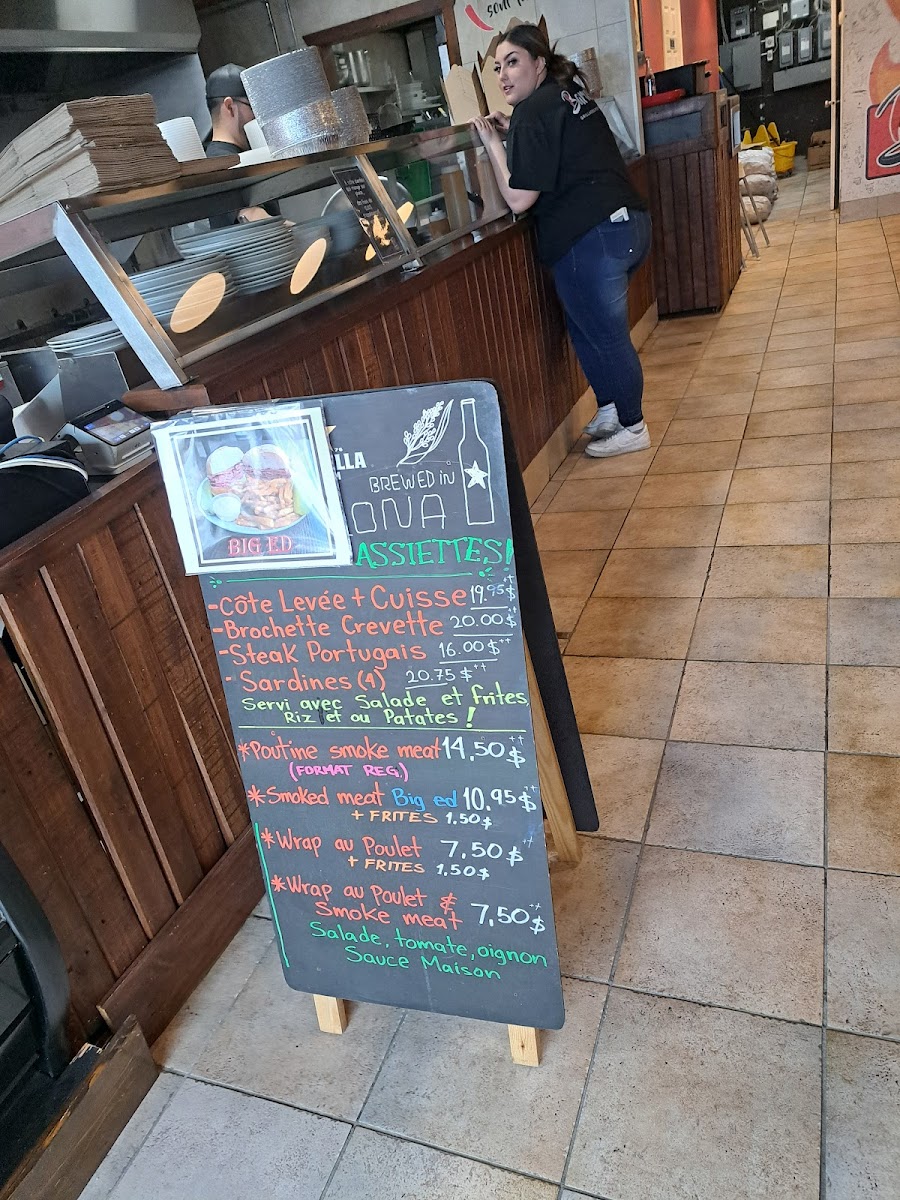 BIG ED
LLA
BREWED IN
ONA
ASSIETTES!
-Côte Levée + Cuisse 19.95$++
-Brochette Crevette 20.00$++
-Steak Portugais 16.00$++
- Sardines (4) 20.75$++
Servi avec Salade et frites,
Riz et ou Patates!
*Poutine smoke meat 14,50$++
(FORMAT REG.)
*Smoked meat Big ed 10,95$++
+ FRITES 1.50$
*Wrap au Poulet 7,50$++
+ FRITES 1,50$
*Wrap au Poulet &
Smoke meat 7,50$++
Salade, tomate, oignon
Sauce Maison